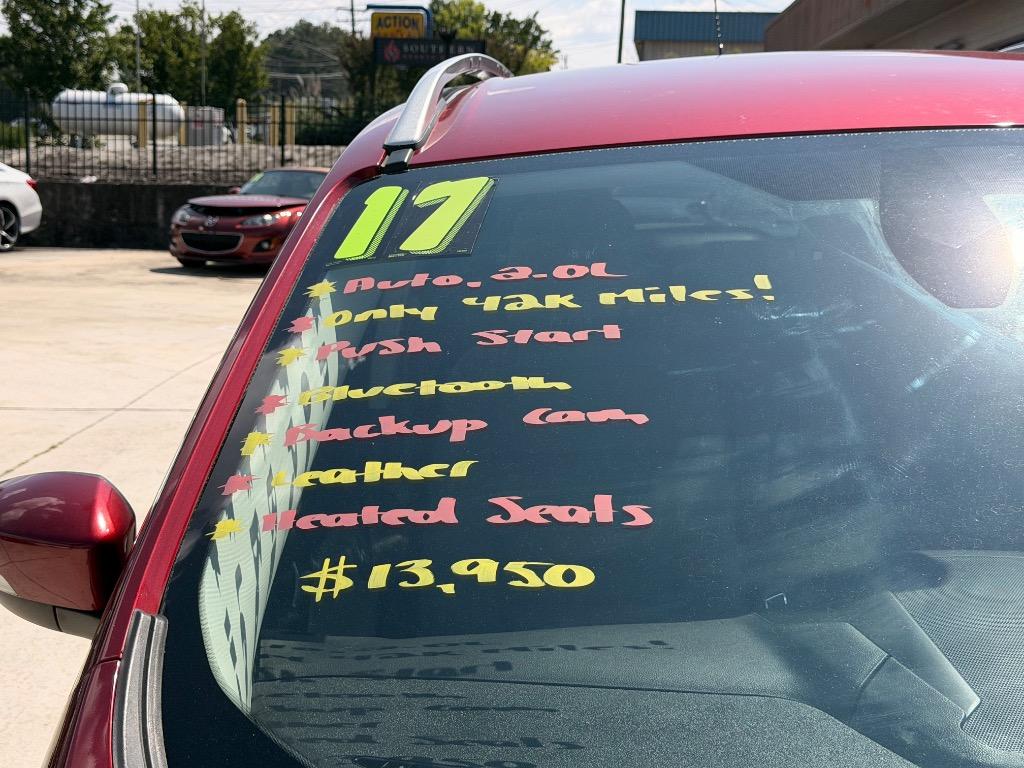 ACTION
SOUTHERN
17
Auto, 2.0L
Only 42K Miles!
Push Start
Bluetooth
Backup Cam
Leather
Heated Seats
$13,950